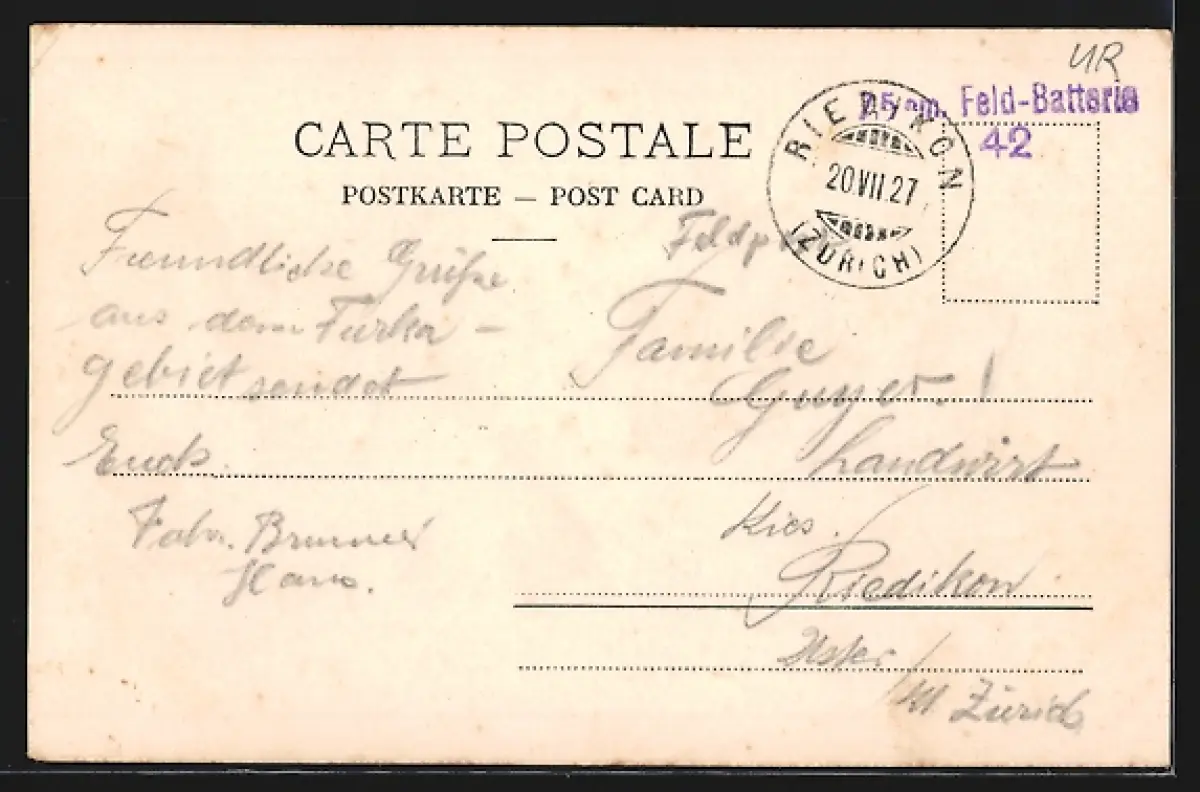 UR
7.5 cm. Feld-Batterie
42
RIEDIKON
20.VII.27
(ZÜRICH)
CARTE POSTALE
POSTKARTE — POST CARD
Feldpost
Freundliche Grüße
aus dem Furka -
gebiet sendet
Euch
Fahr. Brunner
Hans.
Familie
Guyer. !
Landwirt
Kies.
Riedikon
Uster
Zürich